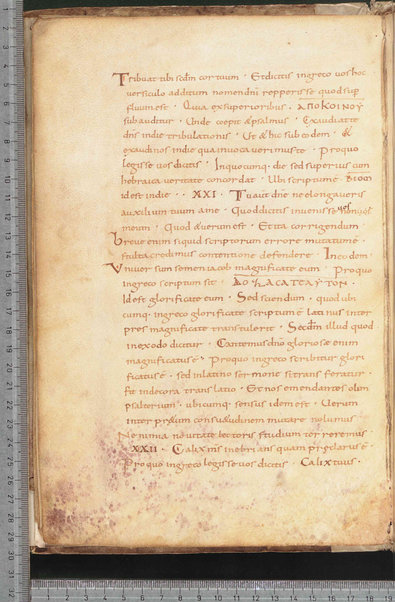 Tribuat tibi scdm cor tuum · Et dicitis in greco uos hoc
uersiculo additum nomen dni repperisse quod sup
fluum est · Quia ex superioribus · ΑΠΟΚΟΙΝΟΥ
subauditur · Unde coepit & psalmus · Exaudiat te
dns in die tribulationis · Ut & hic sub eodem · &
exaudi nos in die qua inuocauerimus te · Pro quo
legisse uos dicitis · In quocumq· die sed superius cum
hebraica ueritate concordat · Ubi scriptum e
id est in die · XXI · Tu aut dne ne elongaueris
auxilium tuum a me · Quod dicitis inuenisse uos
meum · Quod & uerum est · Et ita corrigendum
breue enim si quid scriptorum errore mutatum e
stulta credimus contentione defendere · In eodem ·
Uniuersum semen iacob magnificate eum · Pro quo
in greco scriptum sit · ΔΟΞΑCΑΤΕΑΥΤΟΝ ·
Id est glorificate eum · Sed sciendum · quod ubi
cumq· in greco glorificate scriptum e latinus inter
pres magnificate transtulerit · Secdm illud quod
in exodo dicitur · Cantemus dno gloriose enim
magnificatus e · Pro quo in greco scribitur glori
ficatus e · sed in latino sermone si transferatur ·
fit indecora translatio · Et nos emendantes olim
psalterium · ubicumq· sensus idem est · Ueterum
interpraetum consuaetudinem mutare noluimus
Ne nimia nouitate lectoris studium torreremus
XXII · Calix ms inebrians quam preclarus e
Pro quo in greco legisse uos dicitis · Calix tuus ·